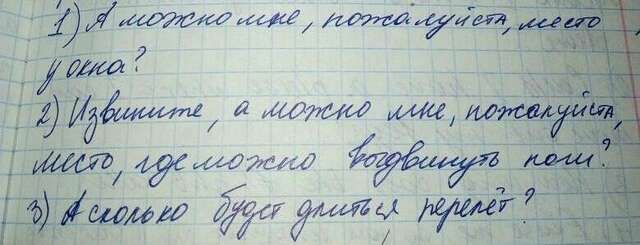 1) А можно мне, пожалуйста, место
у окна?
2) Извините, а можно мне, пожалуйста,
место, где можно выдвинуть ноги?
3) А сколько будет длиться перелёт?